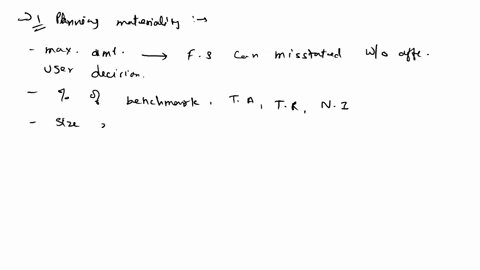 → 1 Planning materiality :→
- max. amt. → F.S can misstated w/o affe.
user decision.
- % of benchmark, T.A, T.R, N.I
- size,